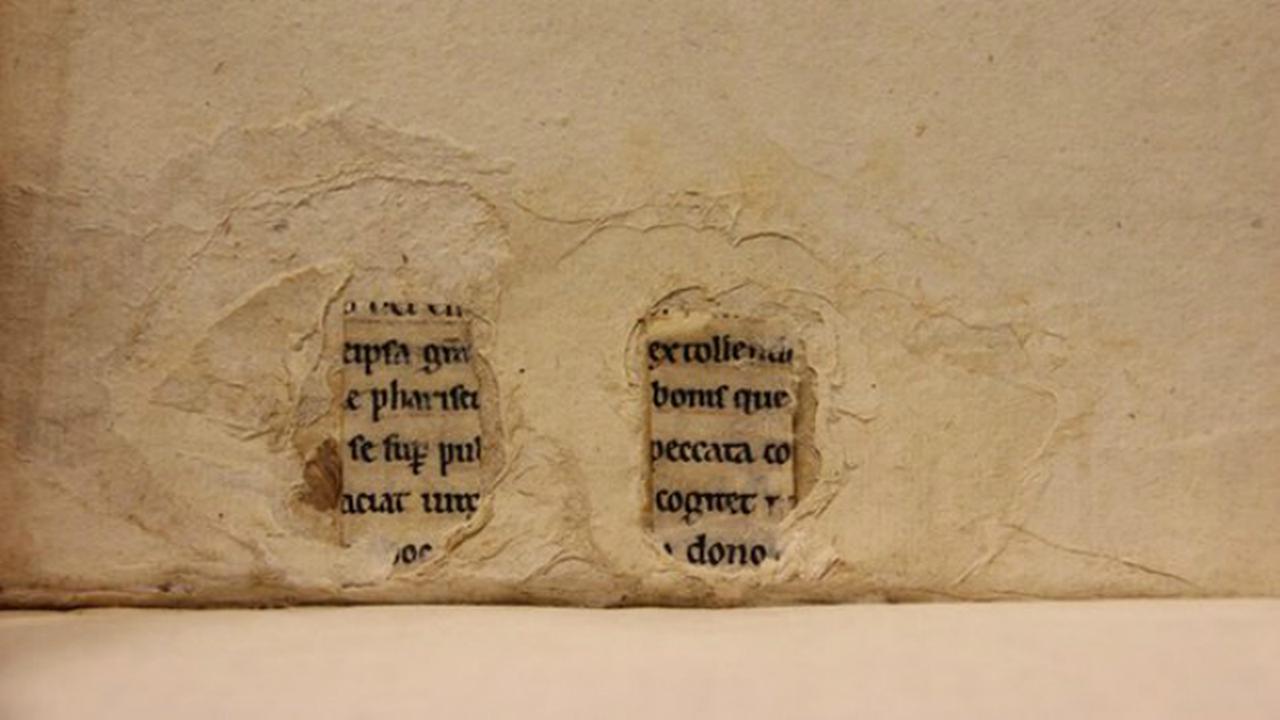 eipsa gr̄a
e pharisei
se sup̲ pul
aciat
hoc
extollenda
bonis que
peccata co
cognet
dono